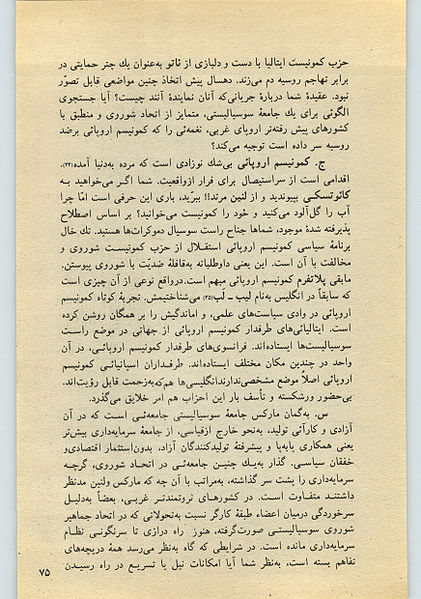 حزب کمونیست ایتالیا با دست و دلبازی از ناتو به‌عنوان یك چتر حمایتی در
برابر تهاجم روسیه دم می‌زند. ده‌سال پیش اتخاذ چنین مواضعی قابل تصوّر
نبود. عقیدهٔ شما دربارهٔ جریانی‌که آنان نمایندهٔ آنند چیست؟ آیا جستجوی
الگوئی برای یك جامعهٔ سوسیالیستی، متمایز از اتحاد شوروی و منطبق با
کشورهای پیش رفته‌تر اروپای غربی، نغمه‌ئی را که کمونیسم اروپائی برضد
روسیه سر داده است توجیه می‌کند؟
ج. کمونیسم اروپائی بی‌شك نوزادی است که مرده به‌دنیا آمده(۲۴).
اقدامی است از سراستیصال برای فرار ازواقعیت. شما اگر می‌خواهید به
کائوتسکی بپیوندید و از لنین مرتد!! ببُرّید، باری این حرفی است امّا چرا
آب را گل‌آلود می‌کنید و خود را کمونیست می‌خوانید؟ بر اساس اصطلاح
پذیرفته شدهٔ موجود، شماها جناح راست سوسیال دموکرات‌ها هستید. تك خال
برنامهٔ سیاسی کمونیسم اروپائی استقلال از حزب کمونیست شوروی و
مخالفت با آن است. این یعنی داوطلبانه به‌قافلهٔ ضدیّت با شوروی پیوستن.
مابقی پلاتفرم کمونیسم اروپائی مبهم است.درواقع نوعی از آن چیزی است
که سابقاً در انگلیس به‌نام لیب ـ لَب(۲۵) می‌شناختیمش. تجربهٔ کوتاه کمونیسم
اروپائی در وادی سیاست‌های علمی، و اماندگیش را بر همگان روشن کرده
است. ایتالیائی‌های طرفدار کمونیسم اروپائی از جهاتی در موضع راست
سوسیالیست‌ها ایستاده‌اند. فرانسوی‌های طرفدار کمونیسم اروپائی، در آن
واحد در چندین مکان مختلف ایستاده‌اند. طرفداران اسپانیائی کمونیسم
اروپائی اصلاً موضع مشخصی‌ندارندانگلیسی‌ها هم‌که‌به‌زحمت قابل رؤیت‌اند.
بی‌حضور ورشکسته و تأسف بار این احزاب هم امر خلایق می‌گذرد.
س. به‌گمان مارکس جامعهٔ سوسیالیستی جامعه‌ئی است که در آن
آزادی و کارآئی تولید، به‌نحو خارج ازقیاسی، از جامعهٔ سرمایه‌داری بیش‌تر
یعنی همکاری پابه‌پا و پیشرفتهٔ تولیدکنندگان آزاد، بدون‌استثمار اقتصادی‌و
خفقان سیاسی. گذار به‌یك چنین جامعه‌ئی در اتحاد شوروی، گرچه
سرمایه‌داری را پشت سر گذاشته، به‌مراتب با آن چه که مارکس ولنین مدنظر
داشتند متفاوت است. در کشورهای ثروتمندتر غربی، بعضاً به‌دلیل
سرخوردگی درمیان اعضاء طبقهٔ کارگر نسبت به‌تحولاتی که در اتحاد جماهیر
شوروی سوسیالیستی صورت‌گرفته، هنوز راه درازی تا سرنگونی نظام
سرمایه‌داری مانده است. در شرایطی که گاه به‌نظر می‌رسد همهٔ دریچه‌های
تفاهم بسته است، به‌نظر شما آیا امکانات نیل یا تسریع در راه رسیدن
۷۵